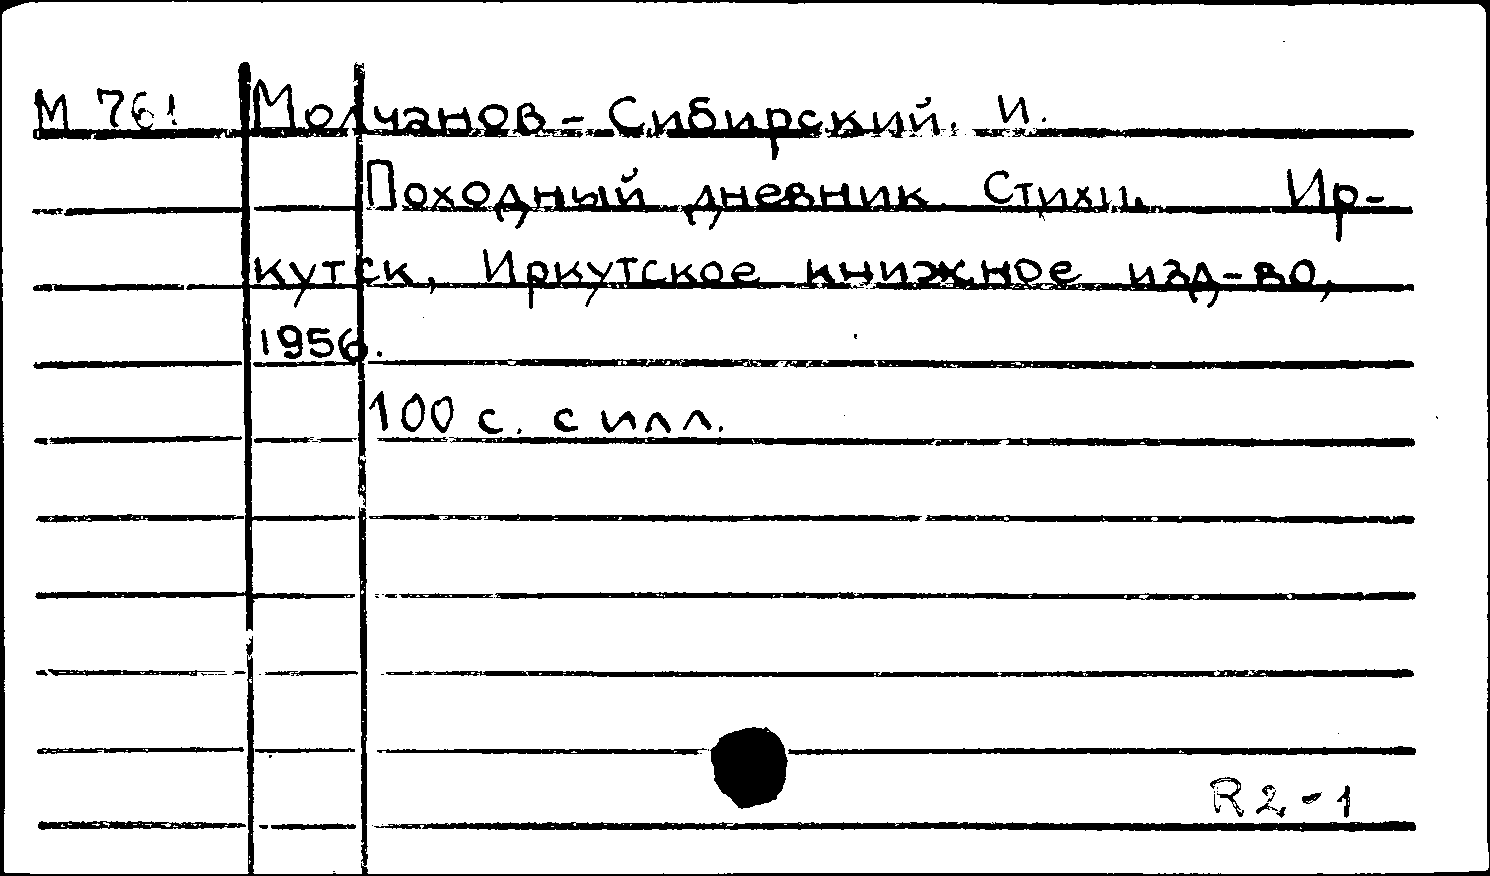 М 761 Молчанов-Сибирский, И.
Походный дневник. Стихи. Ир-
кутск, Иркутское книжное изд-во,
1956.
100 с. с илл.
R2-1